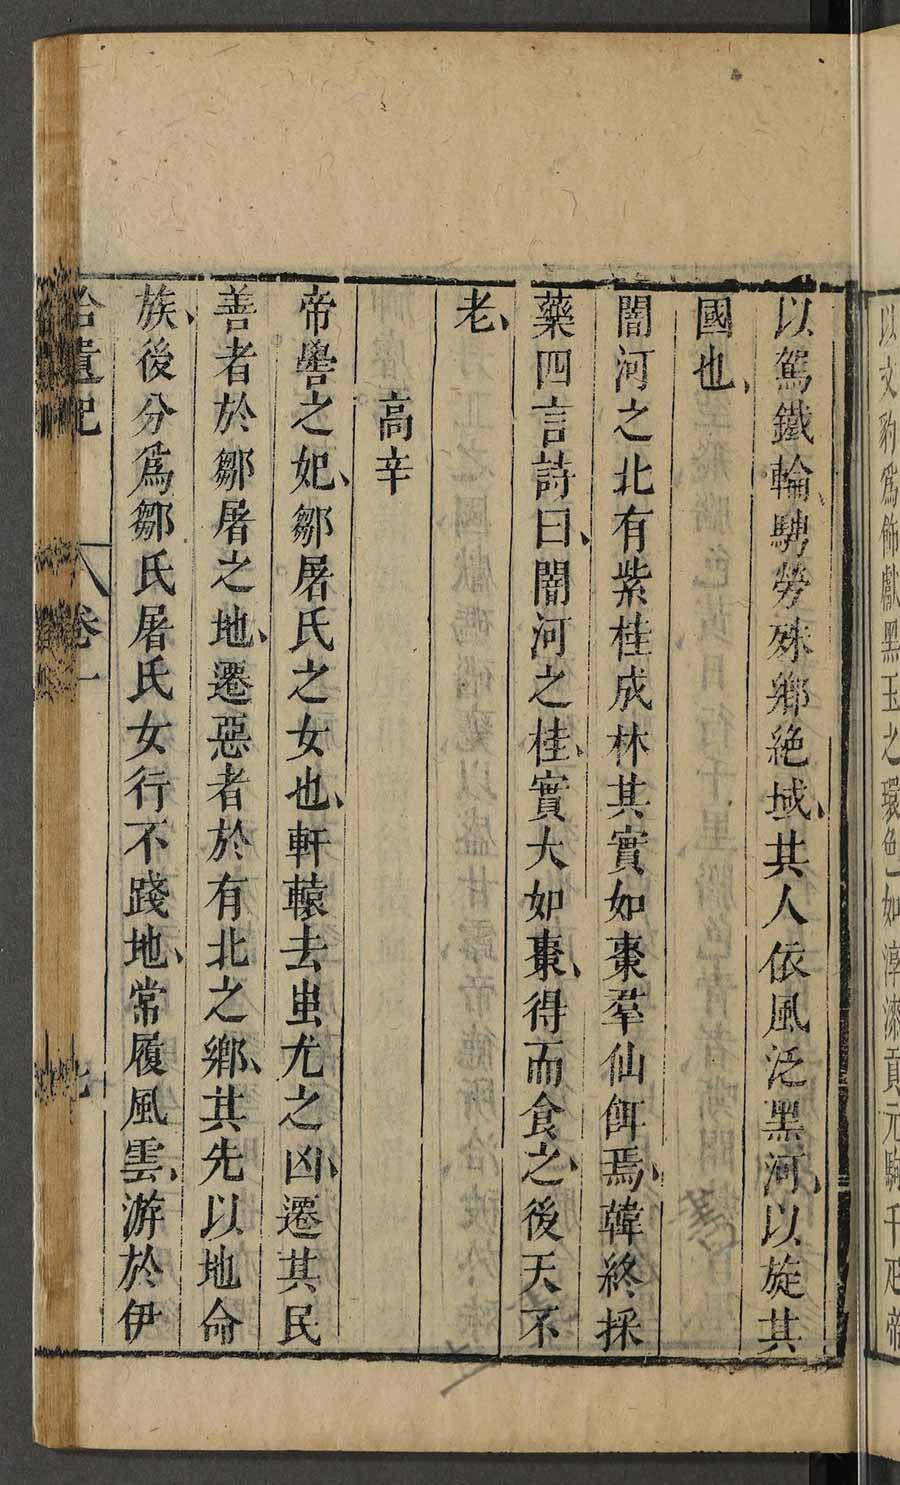 以文豹爲飾獻黑玉之環色如淳漆貢元駒千疋帝
以駕鐵輪、騁勞殊鄉絶域、其人依風泛黑河、以旋其
國也、
闇河之北有紫桂成林其實如棗羣仙餌焉、韓終採
藥四言詩曰、闇河之桂、實大如棗、得而食之、後天不
老、
高辛
帝嚳之妃、鄒屠氏之女也、軒轅去蚩尤之凶、遷其民
善者於鄒屠之地、遷惡者於有北之鄉、其先以地命
族、後分爲鄒氏屠氏女行不踐地、常履風雲、游於伊
拾遺記 卷一 七